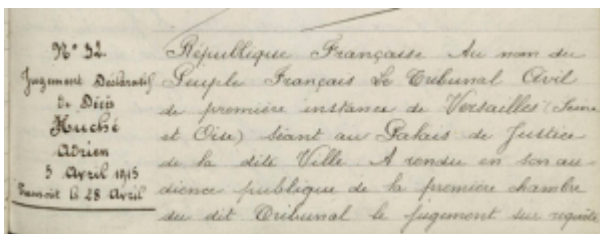 N° 32.
Jugement Déclaratif
de Décès
Huché
Adrien
5 Avril 1915
Transcrit le 28 Avril
République Française Au nom du
Peuple Français Le Tribunal Civil
de première instance de Versailles (Seine
et Oise) séant au Palais de Justice
de la dite Ville A rendu en son au-
dience publique de la première chambre
du dit Tribunal le jugement sur requête